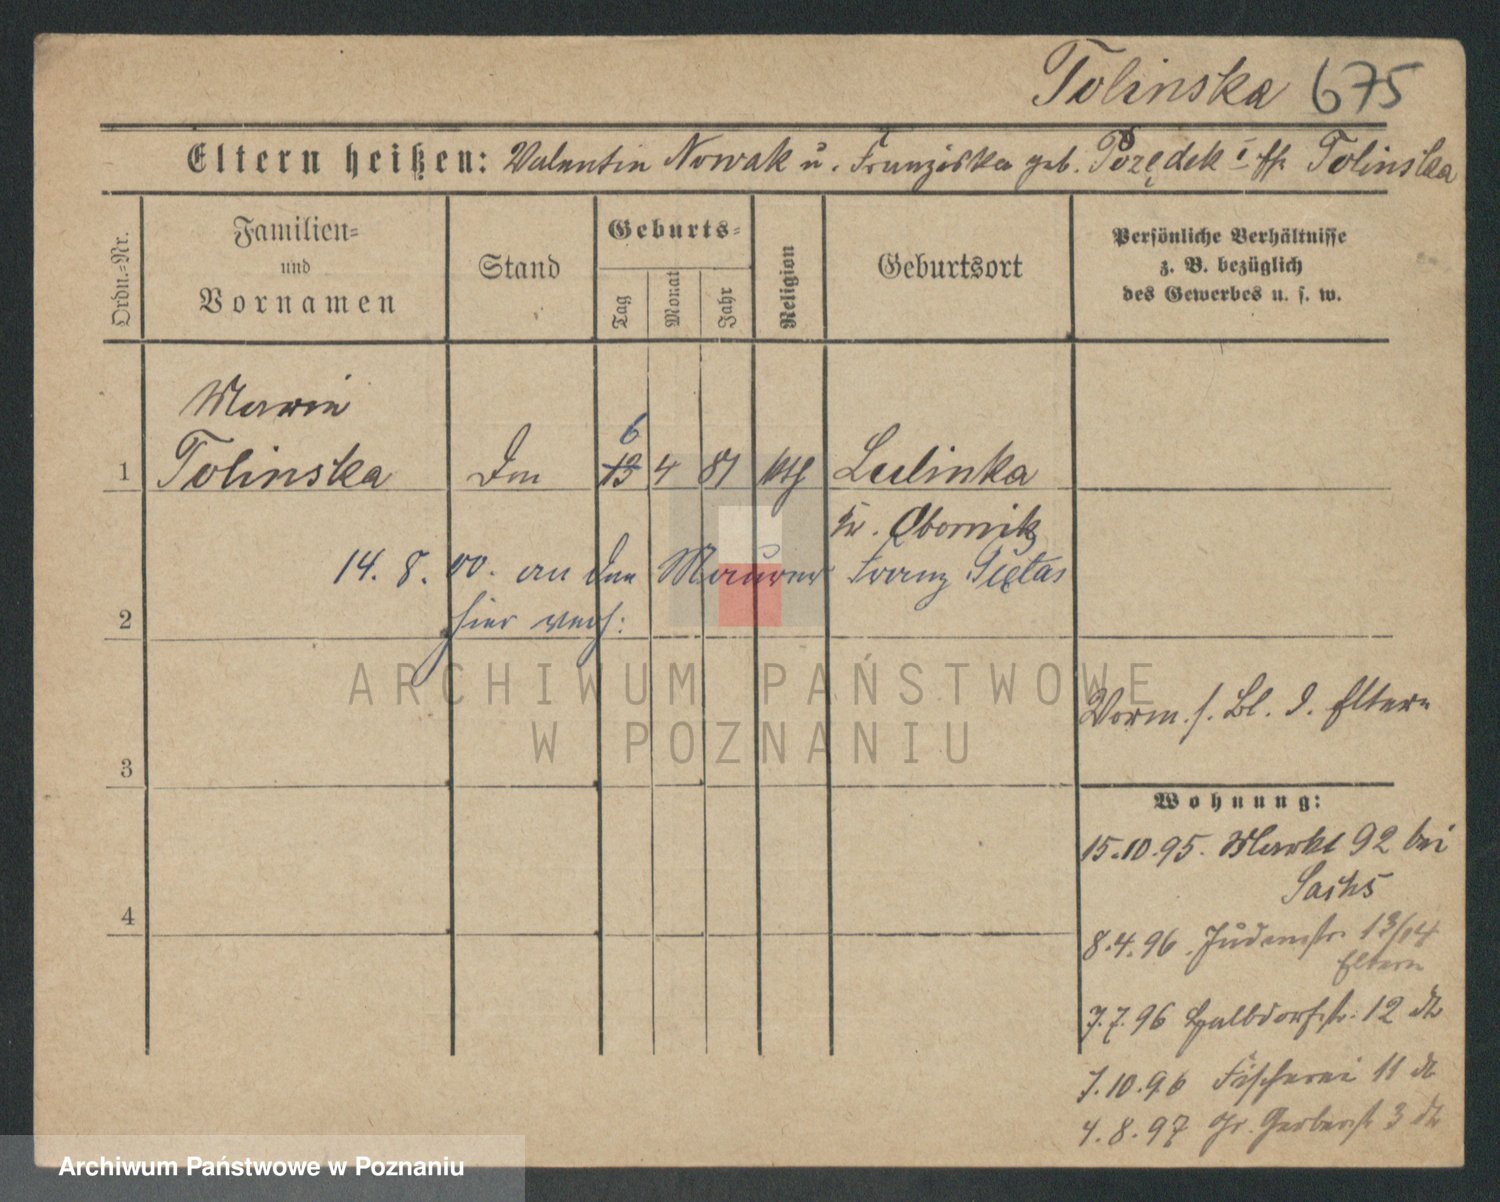 Tolinska 675
Eltern heißen: Valentin Nowak u. Franziska geb. Tolinska
Ordn.-Nr.
Familien-
und
Vornamen
Stand
Geburts-
Tag
Monat
Jahr
Religion
Geburtsort
Persönliche Verhältnisse
z. B. bezüglich
des Gewerbes u. s. w.
Marie
6
1 Tolinska 13 4 81 kth Lulinka
Kr. Obornik
14. 8. 00. an den Maurer Franz Piętas
2 hier verh:
ARCHIWUM PAŃSTWOWE
W POZNANIU
Vorm. s. Bl. d. Eltern
3
Wohnung:
15.10.95. Markt 92 bei
Sachs
4
8.4.96. Judenstr. 13/14
Eltern
7.7.96 Halbdorfstr. 12 do
7.10.96 Fischerei 11 do
4.8.97 Gr. Gerberstr 3 do
Archiwum Państwowe w Poznaniu